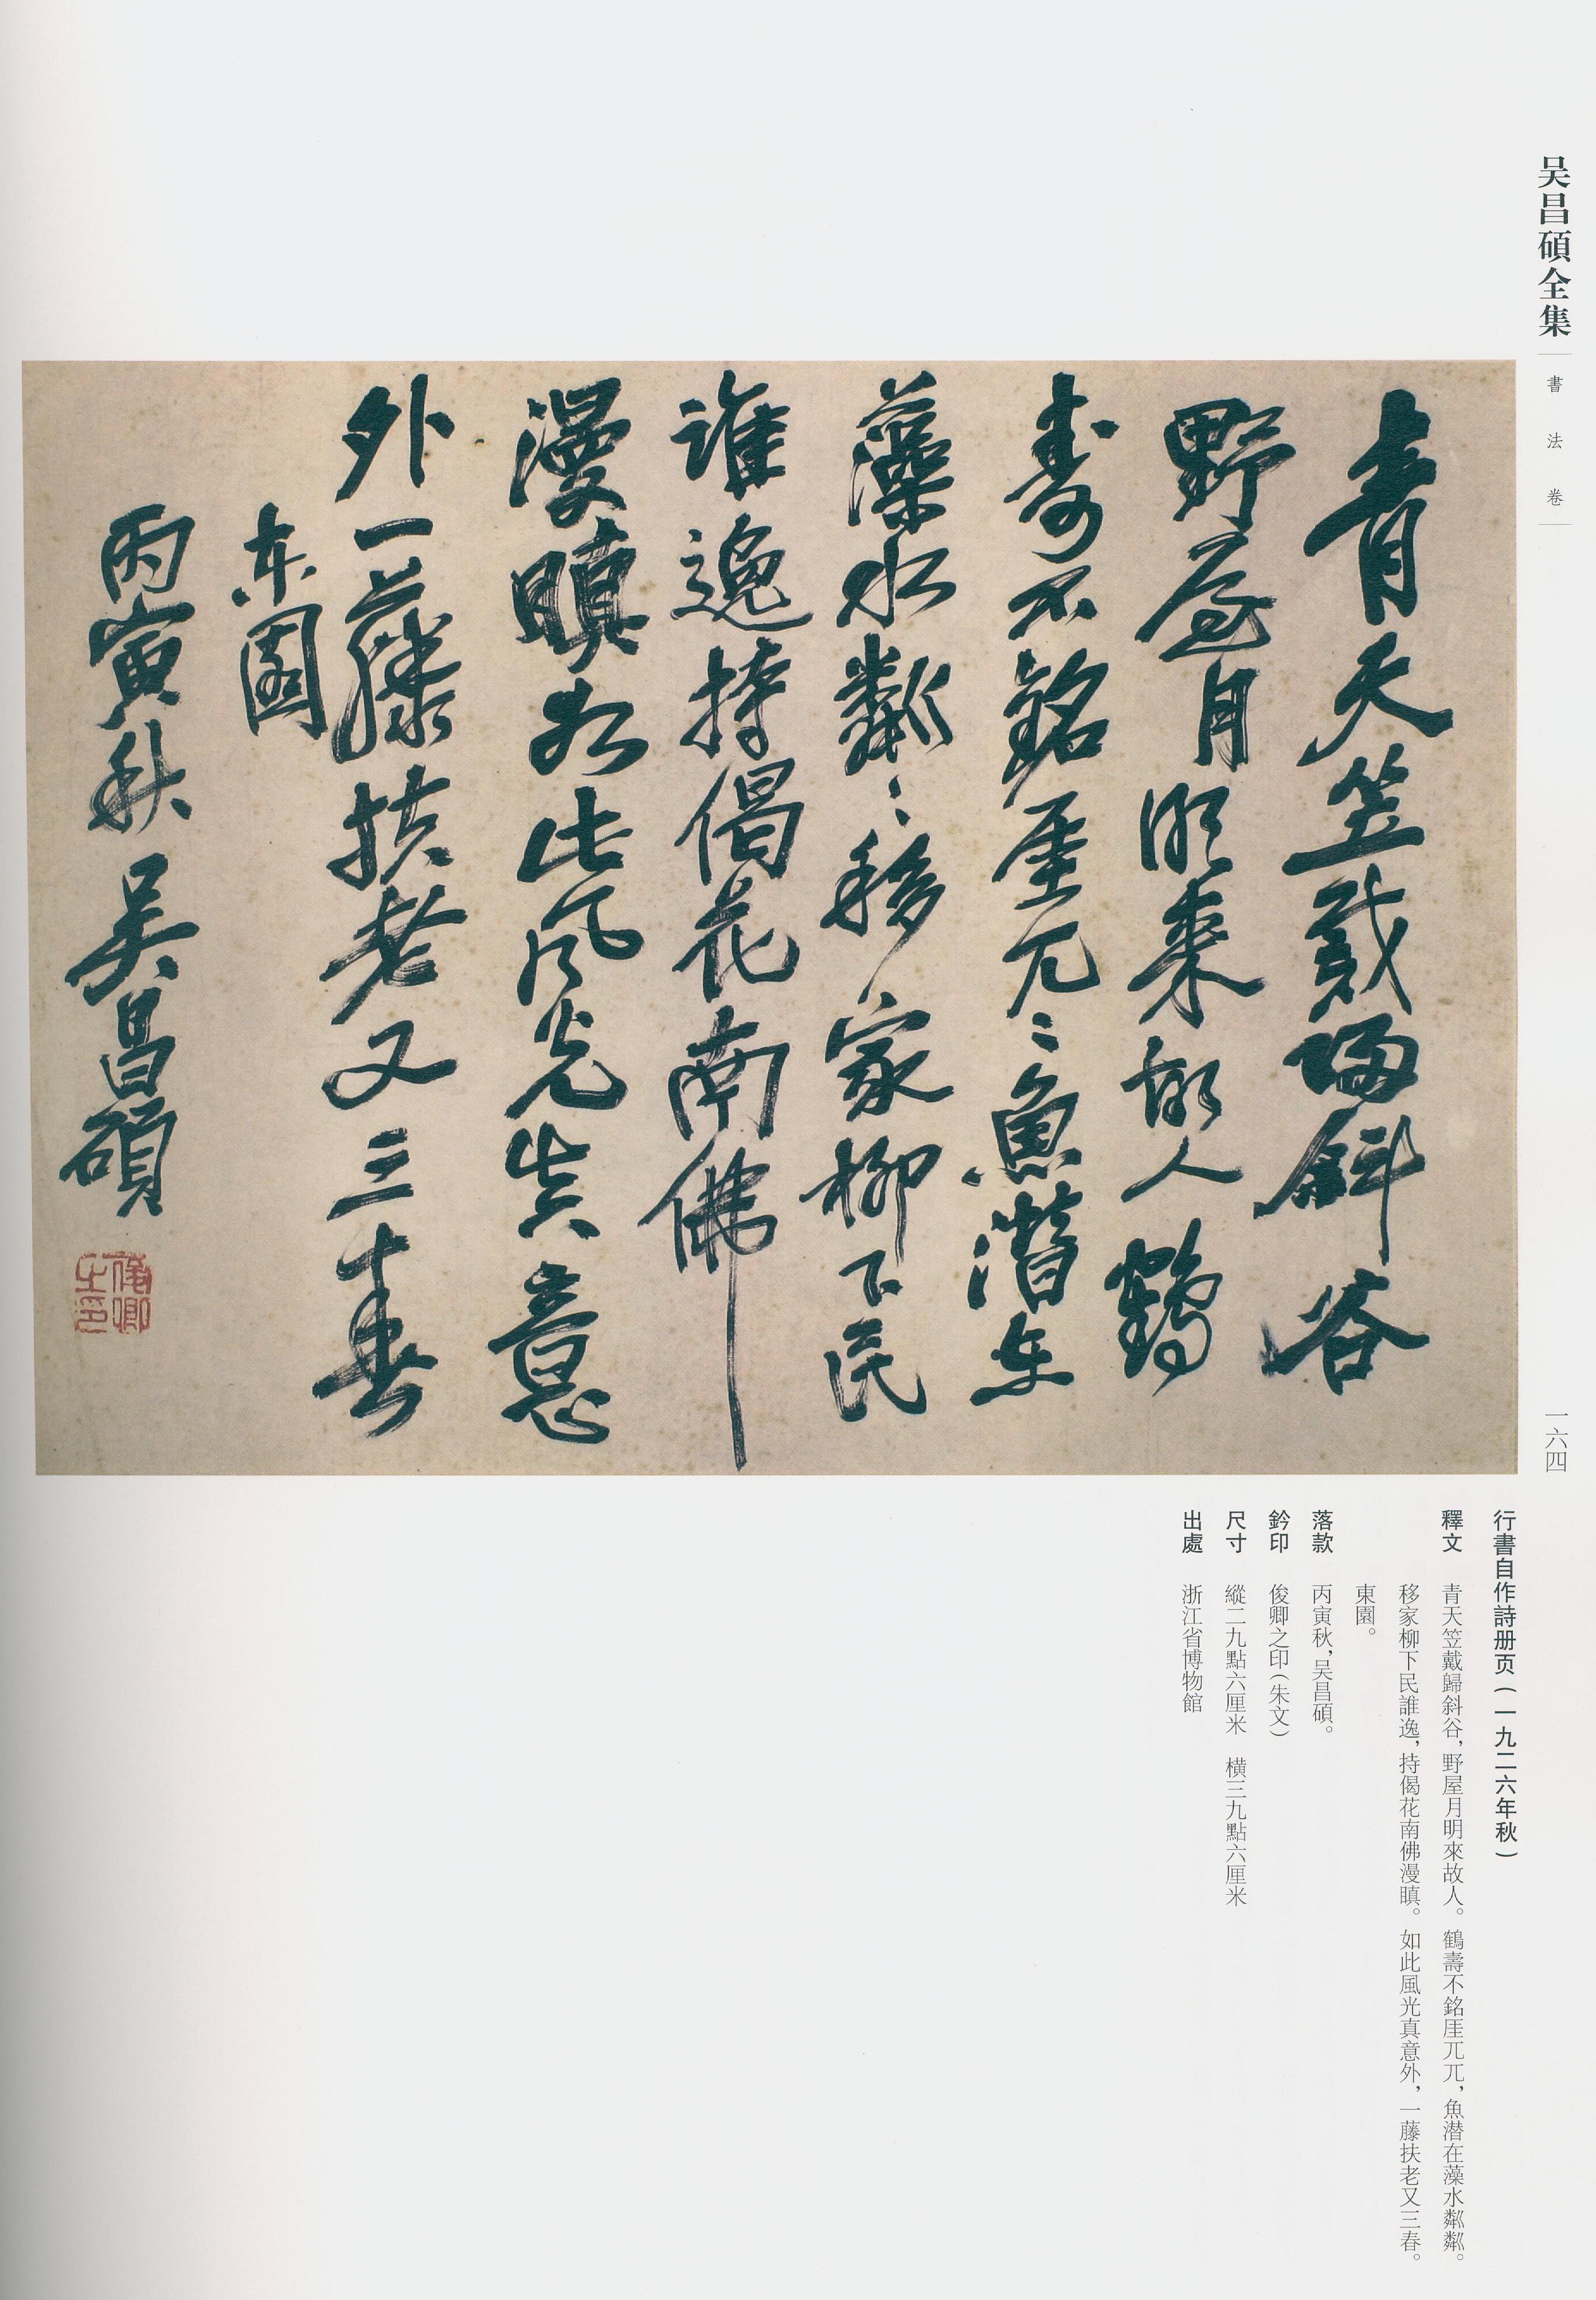 吴昌碩全集
書法卷
一六四
青天笠戴歸斜谷
野屋月明來故人鶴
壽不銘厓兀〻魚潛在
藻水粼〻移家柳下民
誰逸持偈花南佛
漫瞋如此風光真意
外一藤扶老又三春
东園
丙寅秋吴昌碩
俊卿之印
行書自作詩册页(一九二六年秋)
釋文 青天笠戴歸斜谷，野屋月明來故人。鶴壽不銘厓兀兀，魚潛在藻水粼粼。
移家柳下民誰逸，持偈花南佛漫瞋。如此風光真意外，一藤扶老又三春。
東園。
落款 丙寅秋，吴昌碩。
鈐印 俊卿之印(朱文)
尺寸 縱二九點六厘米 横三九點六厘米
出處 浙江省博物館